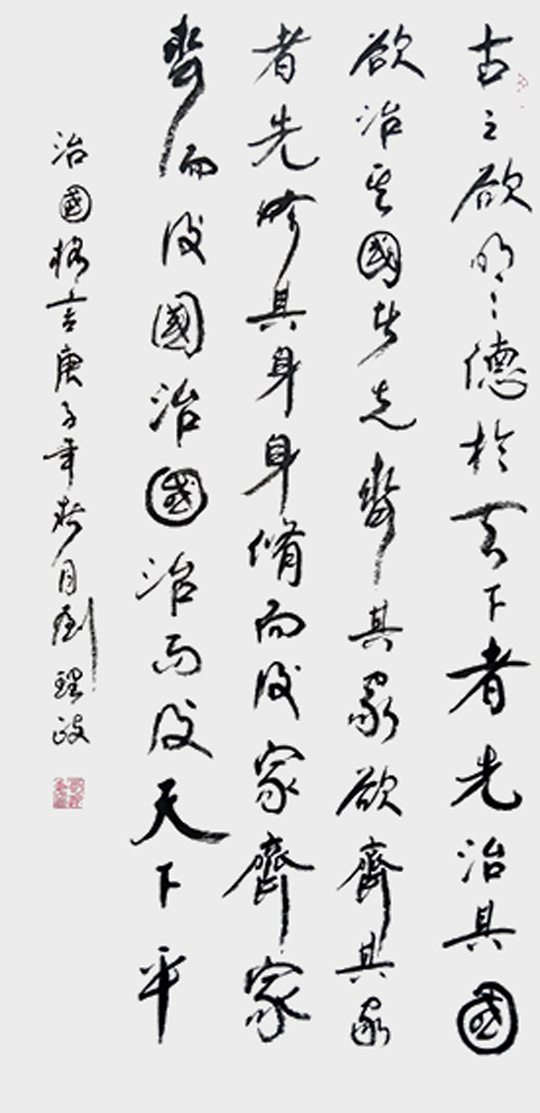 古之欲明〻德於天下者先治其國
欲治其國者先齊其家欲齊其家
者先修其身身脩而後家齊家
齊而後國治國治而後天下平
治國格言庚子年月劉理政